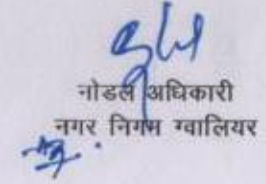 नोडल अधिकारी
नगर निगम ग्वालियर